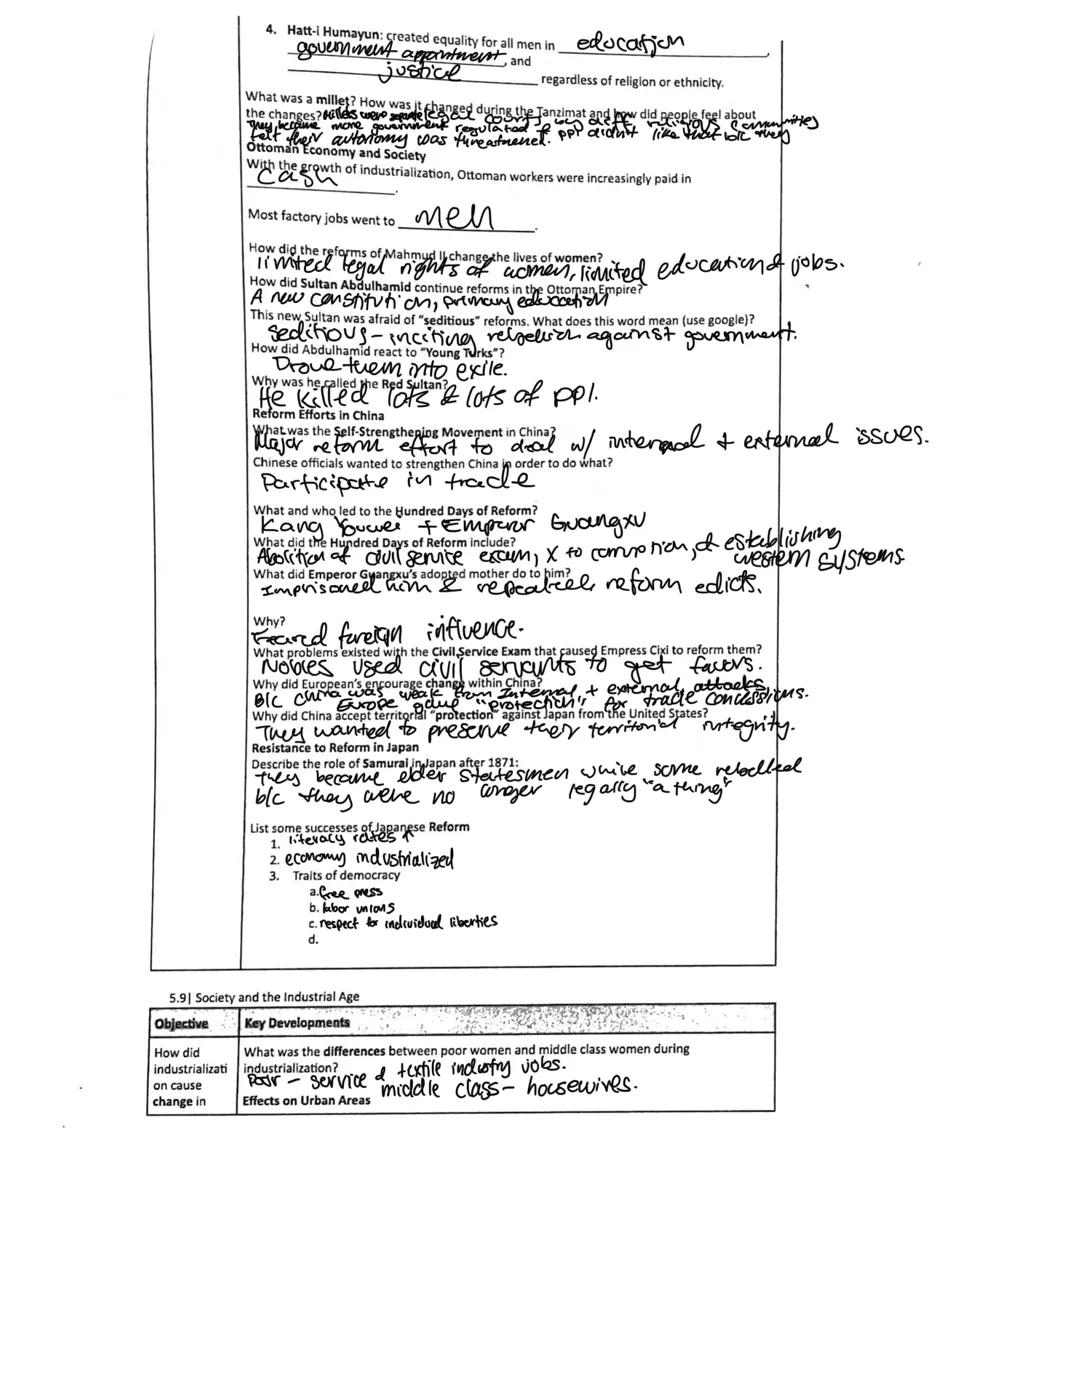 4. Hatt-i Humayun: created equality for all men in education
government appointment, and
justice regardless of religion or ethnicity.
What was a millet? How was it changed during the Tanzimat and how did people feel about
the changes? Millets were separate legal courts rep diff religious communities
They became more government regulated & ppl didnt like that b/c they
felt their autonomy was threatnened.
Ottoman Economy and Society
With the growth of industrialization, Ottoman workers were increasingly paid in
Cash.
Most factory jobs went to men.
How did the reforms of Mahmud II change the lives of women?
limited legal rights of women, limited education & jobs.
How did Sultan Abdulhamid continue reforms in the Ottoman Empire?
A new constitution, primary education
This new Sultan was afraid of "seditious" reforms. What does this word mean (use google)?
Seditious - inciting rebelion against government.
How did Abdulhamid react to "Young Turks"?
Drove them into exile.
Why was he called the Red Sultan?
He killed lots & lots of ppl.
Reform Efforts in China
What was the Self-Strengthening Movement in China?
Major reform effort to deal w/ internal + external issues.
Chinese officials wanted to strengthen China in order to do what?
Participate in trade
What and who led to the Hundred Days of Reform?
Kang Youwei + Emperor Guangxu
What did the Hundred Days of Reform include?
Abolition of civil service exam, X to corruption, & establishing
western systems
What did Emperor Guangxu's adopted mother do to him?
Imprisoned him & repealed reform edicts.
Why?
Feared foreign influence.
What problems existed with the Civil Service Exam that caused Empress Cixi to reform them?
Nobles used civil servants to get favors.
Why did European's encourage change within China?
B/c China was weak from Internal + external attacks,
Europe gave "protection" for trade concessions.
Why did China accept territorial "protection" against Japan from the United States?
They wanted to preserve their territorial integrity.
Resistance to Reform in Japan
Describe the role of Samurai in Japan after 1871:
they became elder statesmen while some rebelled
b/c they were no longer legally "a thing"
List some successes of Japanese Reform
1. literacy rates ↑
2. economy industrialized
3. Traits of democracy
a. free press
b. labor unions
c. respect for individual liberties
d.
5.9| Society and the Industrial Age
Objective Key Developments
How did
industrializati
on cause
change in
What was the differences between poor women and middle class women during
industrialization?
Poor - service & textile industry jobs.
middle class - housewives.
Effects on Urban Areas